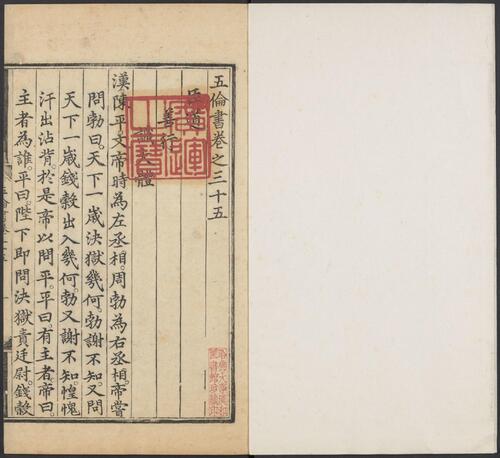 五倫書卷之三十五
臣道
善行
識大體
漢陳平文帝時為左丞相周勃為右丞相帝嘗
問勃曰天下一歲決獄幾何勃謝不知又問
天下一歲錢穀出入幾何勃又謝不知惶愧
汗出沾背於是帝以問平平曰有主者帝曰
主者為誰平曰陛下即問決獄責廷尉錢穀
廣運之寶